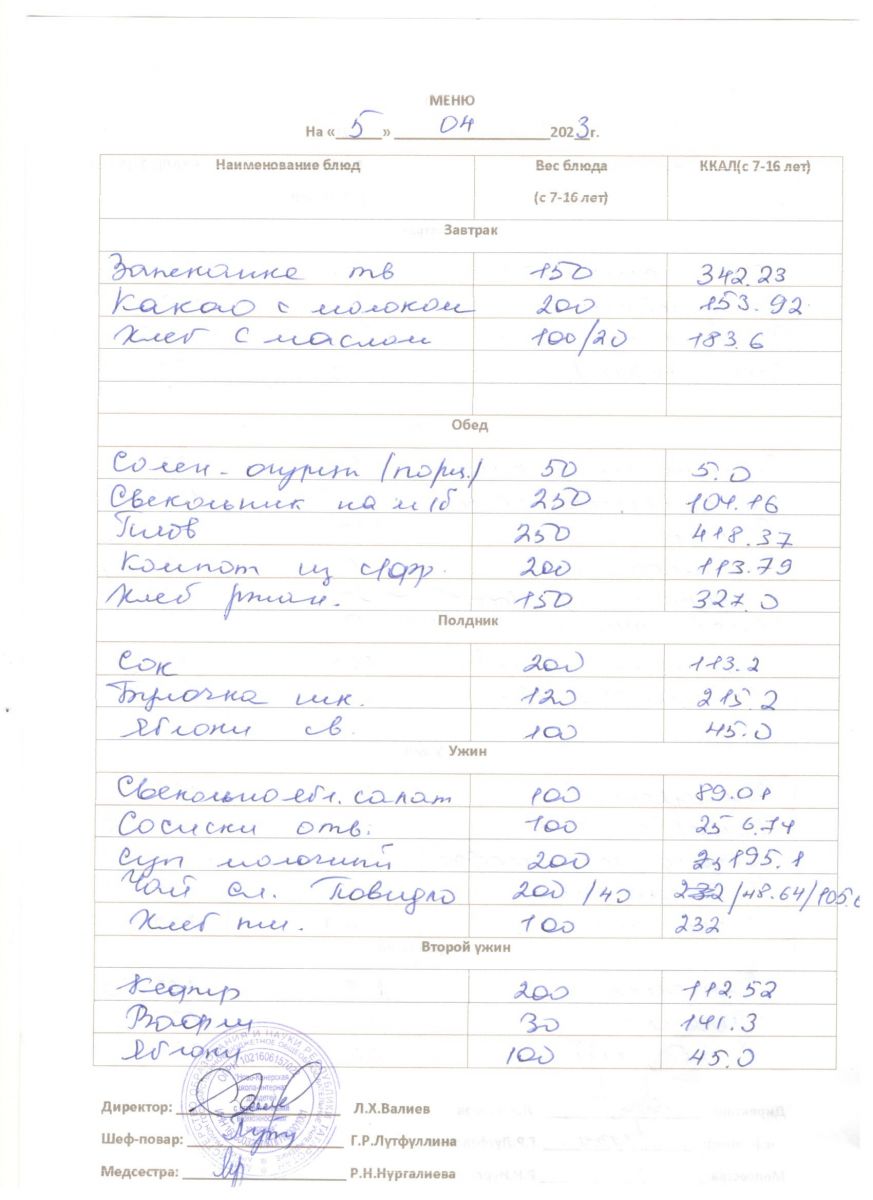 МЕНЮ
На « 5 » 04 2023г.
Наименование блюд Вес блюда (с 7-16 лет) ККАЛ(с 7-16 лет)
Завтрак
Запеканка тв 150 342.23
Какао с молоком 200 153.92
Хлеб с маслом 100/20 183.6
Обед
Солен-огурцы (порц.) 50 5.0
Свекольник на м/б 250 104.16
Плов 250 418.37
Компот из с/фр. 200 113.79
Хлеб ржан. 150 327.0
Полдник
Сок 200 113.2
Булочка шк. 120 215.2
Яблоки св. 100 45.0
Ужин
Свекольно ябл. салат 100 89.01
Сосиски отв. 100 256.74
Суп молочный 200 195.1
Чай сл. Повидло 200/40 232/48.64/105
Хлеб пш. 100 232
Второй ужин
Кефир 200 112.52
Вафли 30 141.3
Яблоки 100 45.0
Директор: Л.Х.Валиев
Шеф-повар: Г.Р.Лутфуллина
Медсестра: Р.Н.Нургалиева